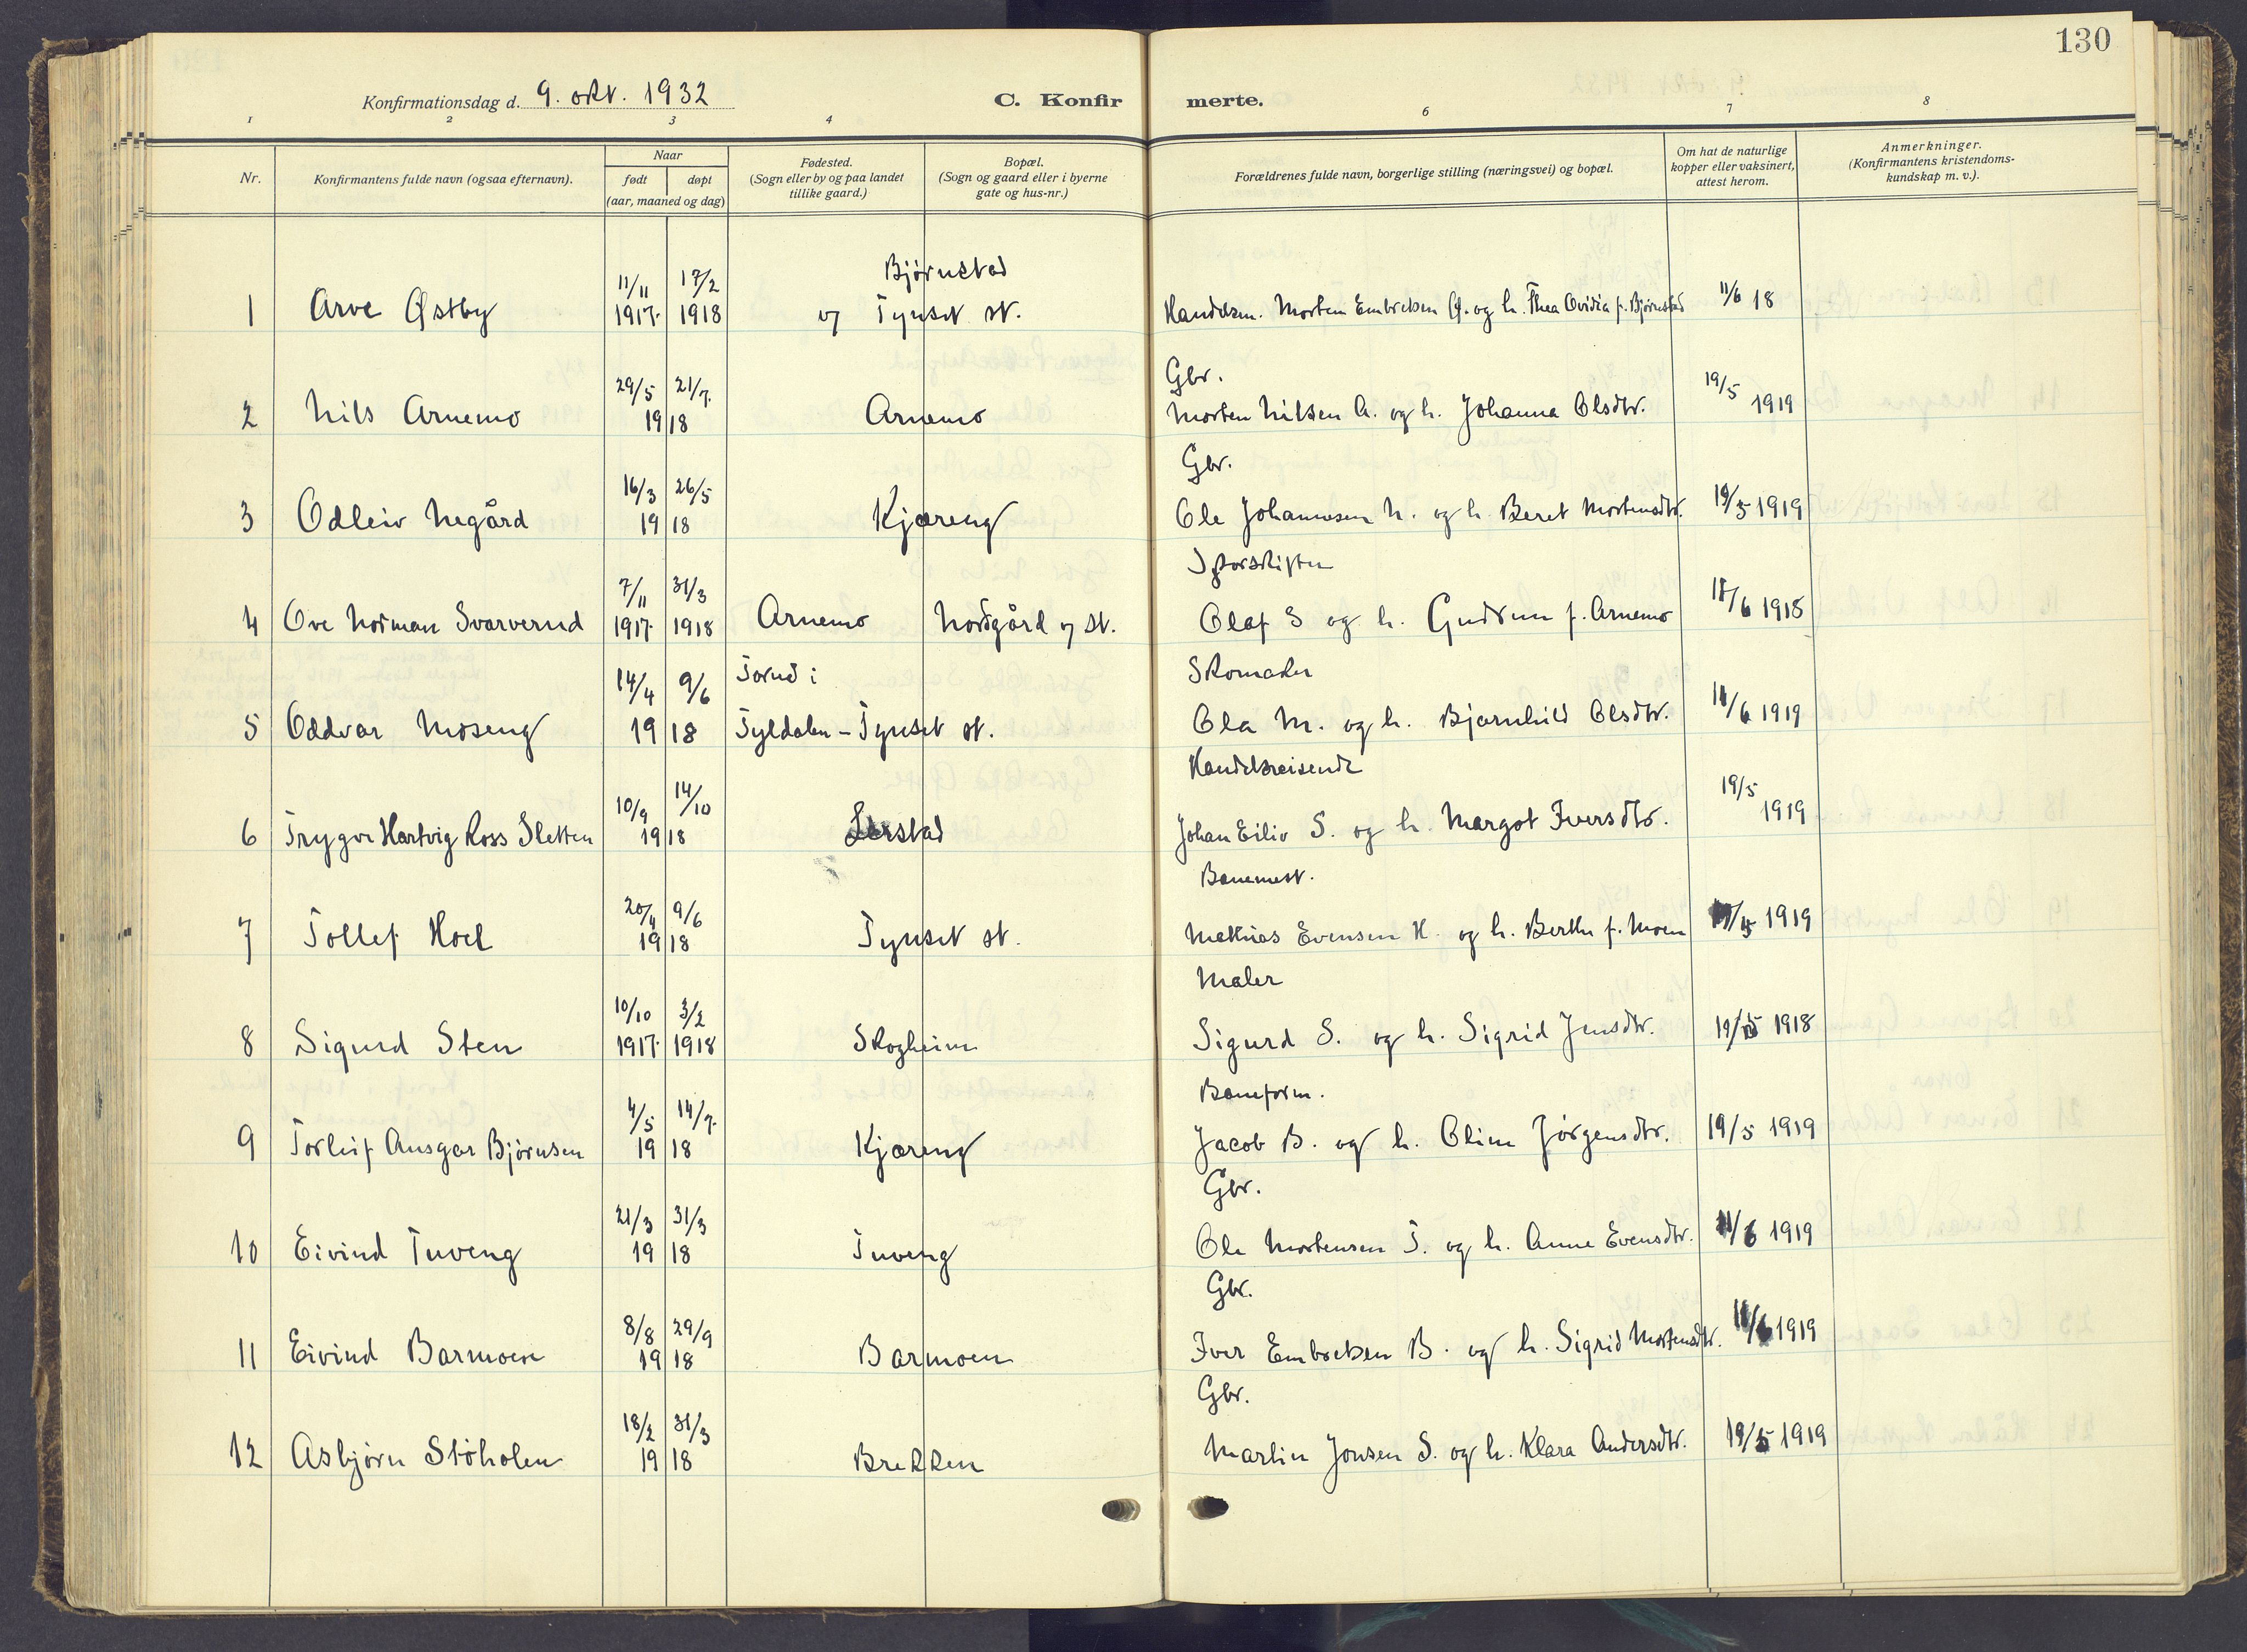 130
Konfirmationsdag d. 9. okt. 1932
C. Konfir merte.
1 2 3 4 6 7 8
Nr.
Konfirmantens fulde navn (ogsaa efternavn).
Naar
født døpt
(aar, maaned og dag)
Fødested.
(Sogn eller by og paa landet
tillike gaard.)
Bopæl.
(Sogn og gaard eller i byerne
gate og hus-nr.)
Forældrenes fulde navn, borgerlige stilling (næringsvei) og bopæl.
Om hat de naturlige
kopper eller vaksinert,
attest herom.
Anmerkninger.
(Konfirmantens kristendoms-
kundskap m. v.).
11/11 17/2 Bjørnstad
1 Arve Østby 1917 1918 og Tynset st. Handelsm. Morten Embretsen Ø. og h. Thea Ovidia f. Bjørnstad 11/6 18
29/5 21/7 Gbr. 19/5
2 Nils Arnemo 19 18 Arnemo Morten Nilsen A. og h. Johanna Olsdtr. 1919
16/3 26/5 Gbr.
3 Odleiv Negård 19 18 Kjæreng Ole Johannesen N. og h. Beret Mortensdtr. 19/5 1919
7/11 31/3 Sporskifter
4 Ove Norman Svarverud 1917 1918 Arnemo Nordgård og st. Olaf S og h. Gudrun f. Arnemo 11/6 1918
14/4 9/6 Torud i Skomaker
5 Oddvar Moseng 19 18 Tyldalen - Tynset st. Ola M. og h. Bjarnhild Olsdtr. 11/6 1919
10/9 14/10 Handelsreisende 19/5
6 Trygve Hartvig Ross Sletten 19 18 Lerstad Johan Eiliv S. og h. Margot Iversdtr. 1919
20/4 9/6 Banemest.
7 Tollef Hoel 19 18 Tynset st. Mathias Evensen H. og h. Berthe f. Moen 1919
10/10 3/2 Maler
8 Sigurd Sten 1917 1918 Skogheim Sigurd S. og h. Sigrid Jensdtr. 19/5 1918
4/5 14/7 Baneform.
9 Torleif Ansgar Bjørnsen 19 18 Kjæreng Jacob B. og h. Oline Jørgensdtr. 19/5 1919
21/3 31/3 Gbr.
10 Eivind Tuveng 19 18 Tuveng Ole Mortensen T. og h. Anne Evensdtr. 11/6 1919
8/8 29/9 Gbr.
11 Eivind Barmoen 19 18 Barmoen Iver Embretsen B. og h. Sigrid Mortensdtr. 11/6 1919
18/2 31/3 Gbr.
12 Asbjørn Stöholen 19 18 Brekken Martin Jonsen S. og h. Klara Andersdtr. 19/5 1919